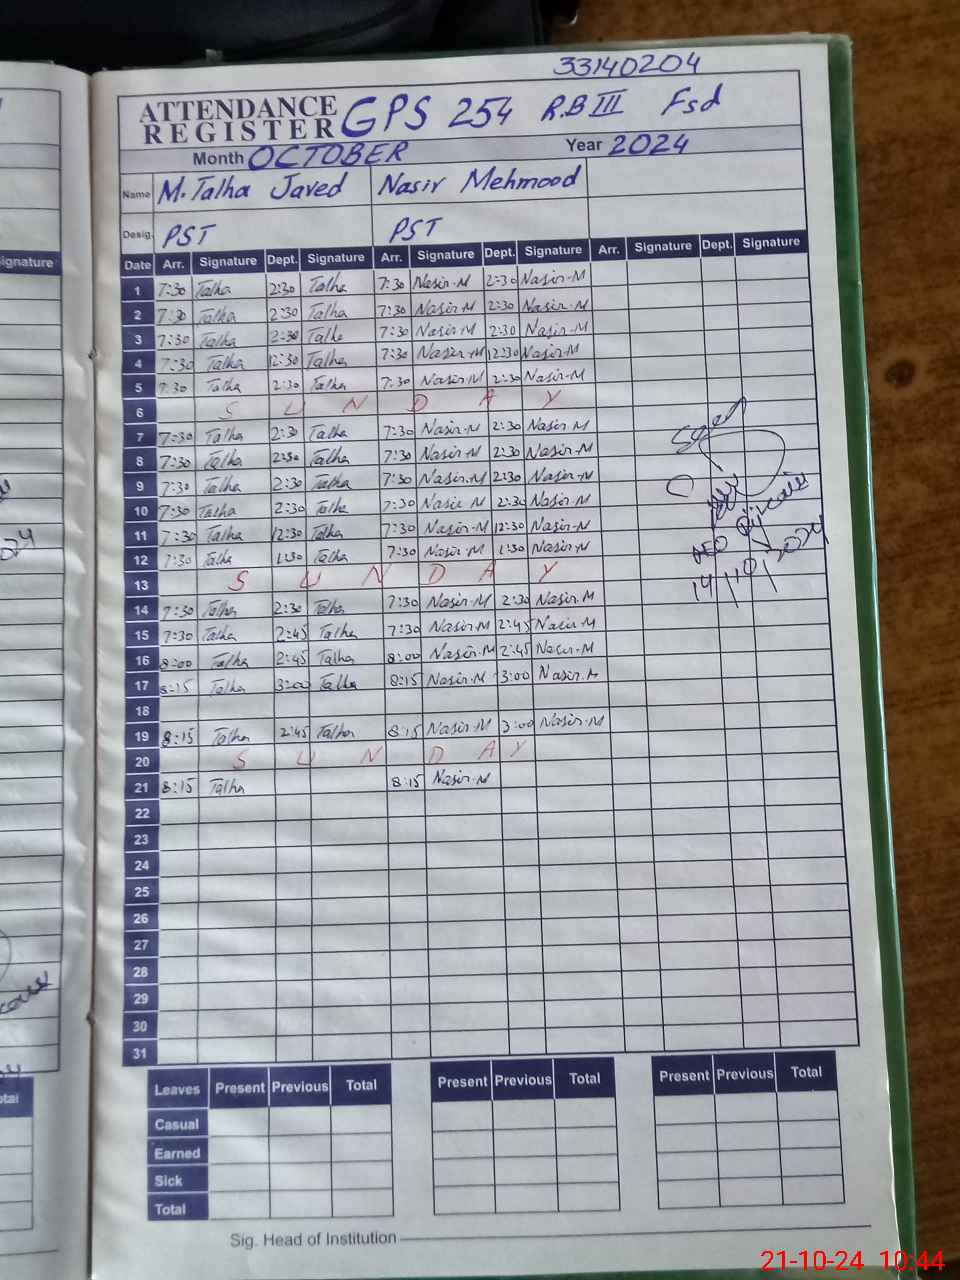 33140204
ATTENDANCE REGISTER GPS 254 R.B III Fsd
Month OCTOBER Year 2024
Name M. Talha Javed Nasir Mehmood
Desig. PST PST
Date Arr. Signature Dept. Signature Arr. Signature Dept. Signature Arr. Signature Dept. Signature
1 7:30 Talha 2:30 Talha 7:30 Nasir-M 2:30 Nasir-M
2 7:30 Talha 2:30 Talha 7:30 Nasir M 2:30 Nasir-M
3 7:30 Talha 2:30 Talha 7:30 Nasir-M 2:30 Nasir-M
4 7:30 Talha 12:30 Talha 7:30 Nasir-M 12:30 Nasir-M
5 7:30 Talha 2:30 Talha 7:30 Nasir-M 2:30 Nasir-M
6 S U N D A Y
7 7:30 Talha 2:30 Talha 7:30 Nasir-M 2:30 Nasir M
8 7:30 Talha 2:30 Talha 7:30 Nasir-M 2:30 Nasir-M
9 7:30 Talha 2:30 Talha 7:30 Nasir.M 2:30 Nasir-M
10 7:30 Talha 2:30 Talha 7:30 Nasir M 2:30 Nasir-M
11 7:30 Talha 12:30 Talha 7:30 Nasir-M 12:30 Nasir-M
12 7:30 Talha 1:30 Talha 7:30 Nasir-M 1:30 Nasir-M
13 S U N D A Y
14 7:30 Talha 2:30 Talha 7:30 Nasir-M 2:30 Nasir.M
15 7:30 Talha 2:45 Talha 7:30 Nasir M 2:45 Nasir M
16 8:00 Talha 2:45 Talha 8:00 Nasir.M 2:45 Nasir-M
17 8:15 Talha 3:00 Talha 8:15 Nasir-M 3:00 Nasir.M
18
19 8:15 Talha 2:45 Talha 8:15 Nasir-M 3:00 Nasir-M
20 S U N D A Y
21 8:15 Talha 8:15 Nasir-M
22
23
24
25
26
27
28
29
30
31
AEO
14/10/2024
Leaves Present Previous Total Present Previous Total Present Previous Total
Casual
Earned
Sick
Total
Sig. Head of Institution
21-10-24 10:44